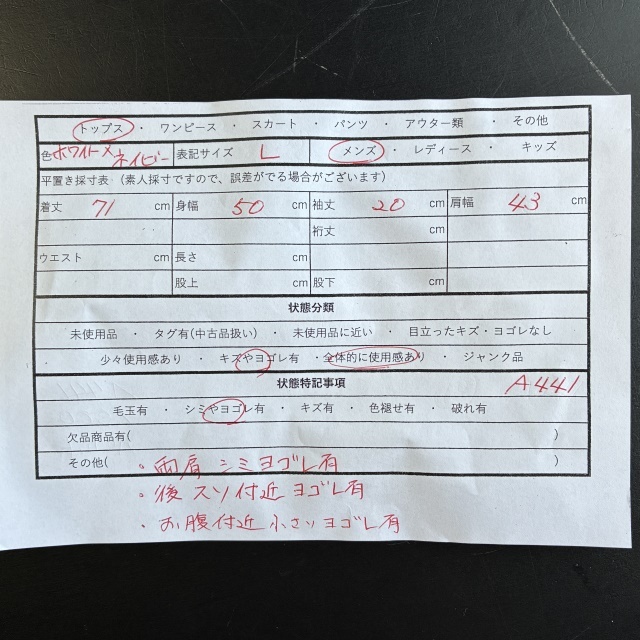 トップス ・ ワンピース ・ スカート ・ パンツ ・ アウター類 ・ その他
色 ホワイト×ネイビー 表記サイズ L メンズ ・ レディース ・ キッズ
平置き採寸表 (素人採寸ですので、誤差がでる場合がございます)
着丈 71 cm 身幅 50 cm 袖丈 20 cm 肩幅 43 cm
裄丈 cm
ウエスト cm 長さ cm
股上 cm 股下 cm
状態分類
未使用品 ・ タグ有(中古品扱い) ・ 未使用品に近い ・ 目立ったキズ・ヨゴレなし
少々使用感あり ・ キズやヨゴレ有 ・ 全体的に使用感あり ・ ジャンク品
状態特記事項 A441
毛玉有 ・ シミやヨゴレ有 ・ キズ有 ・ 色褪せ有 ・ 破れ有
欠品商品有( )
その他( )
・両肩 シミヨゴレ有
・後スソ付近 ヨゴレ有
・お腹付近 小さいヨゴレ有